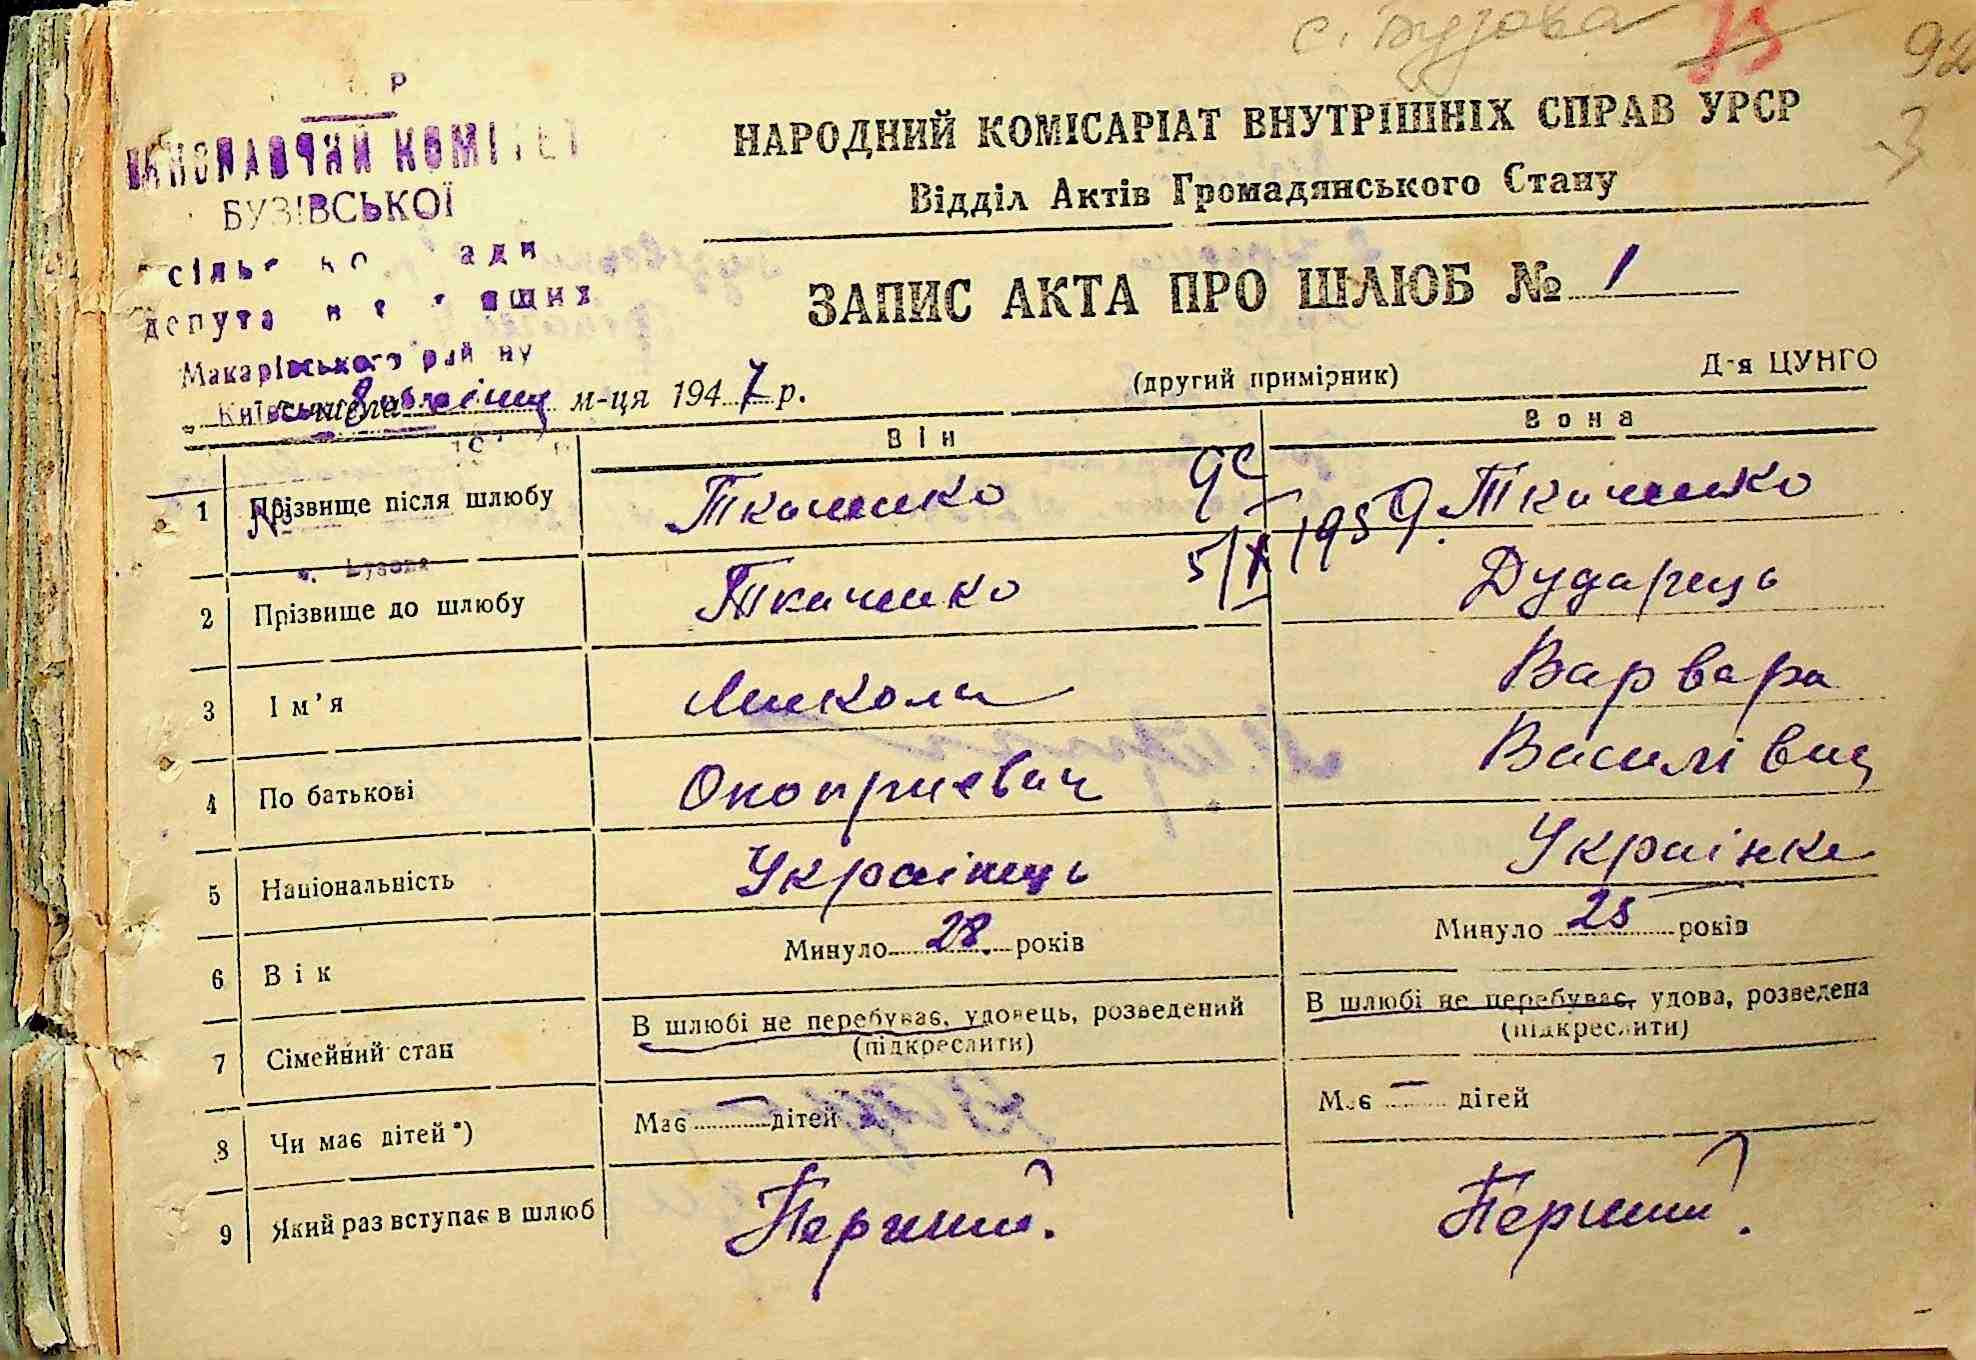 с. Бузова
92
3
ВИКОНАВЧИЙ КОМІТЕТ
БУЗІВСЬКОЇ
Макарівського району
НАРОДНИЙ КОМІСАРІАТ ВНУТРІШНІХ СПРАВ УРСР
Відділ Актів Громадянського Стану
ЗАПИС АКТА ПРО ШЛЮБ № 1
(другий примірник)
Д-я ЦУНГО
„ 8 числа січня м-ця 1947 р.
Він Вона
1 Прізвище після шлюбу Ткаченко Ткаченко
№
5/X 1959.
с. Бузова
2 Прізвище до шлюбу Ткаченко Дударець
3 Ім'я Микола Варвара
4 По батькові Оноприєвич Василівна
5 Національність Українець Українка
6 Вік Минуло 28 років Минуло 25 років
7 Сімейний стан В шлюбі не перебуває, удовець, розведений В шлюбі не перебуває, удова, розведена
(підкреслити) (підкреслити)
8 Чи має дітей*) Має — дітей Має — дітей
9 Який раз вступає в шлюб Перший. Перший.